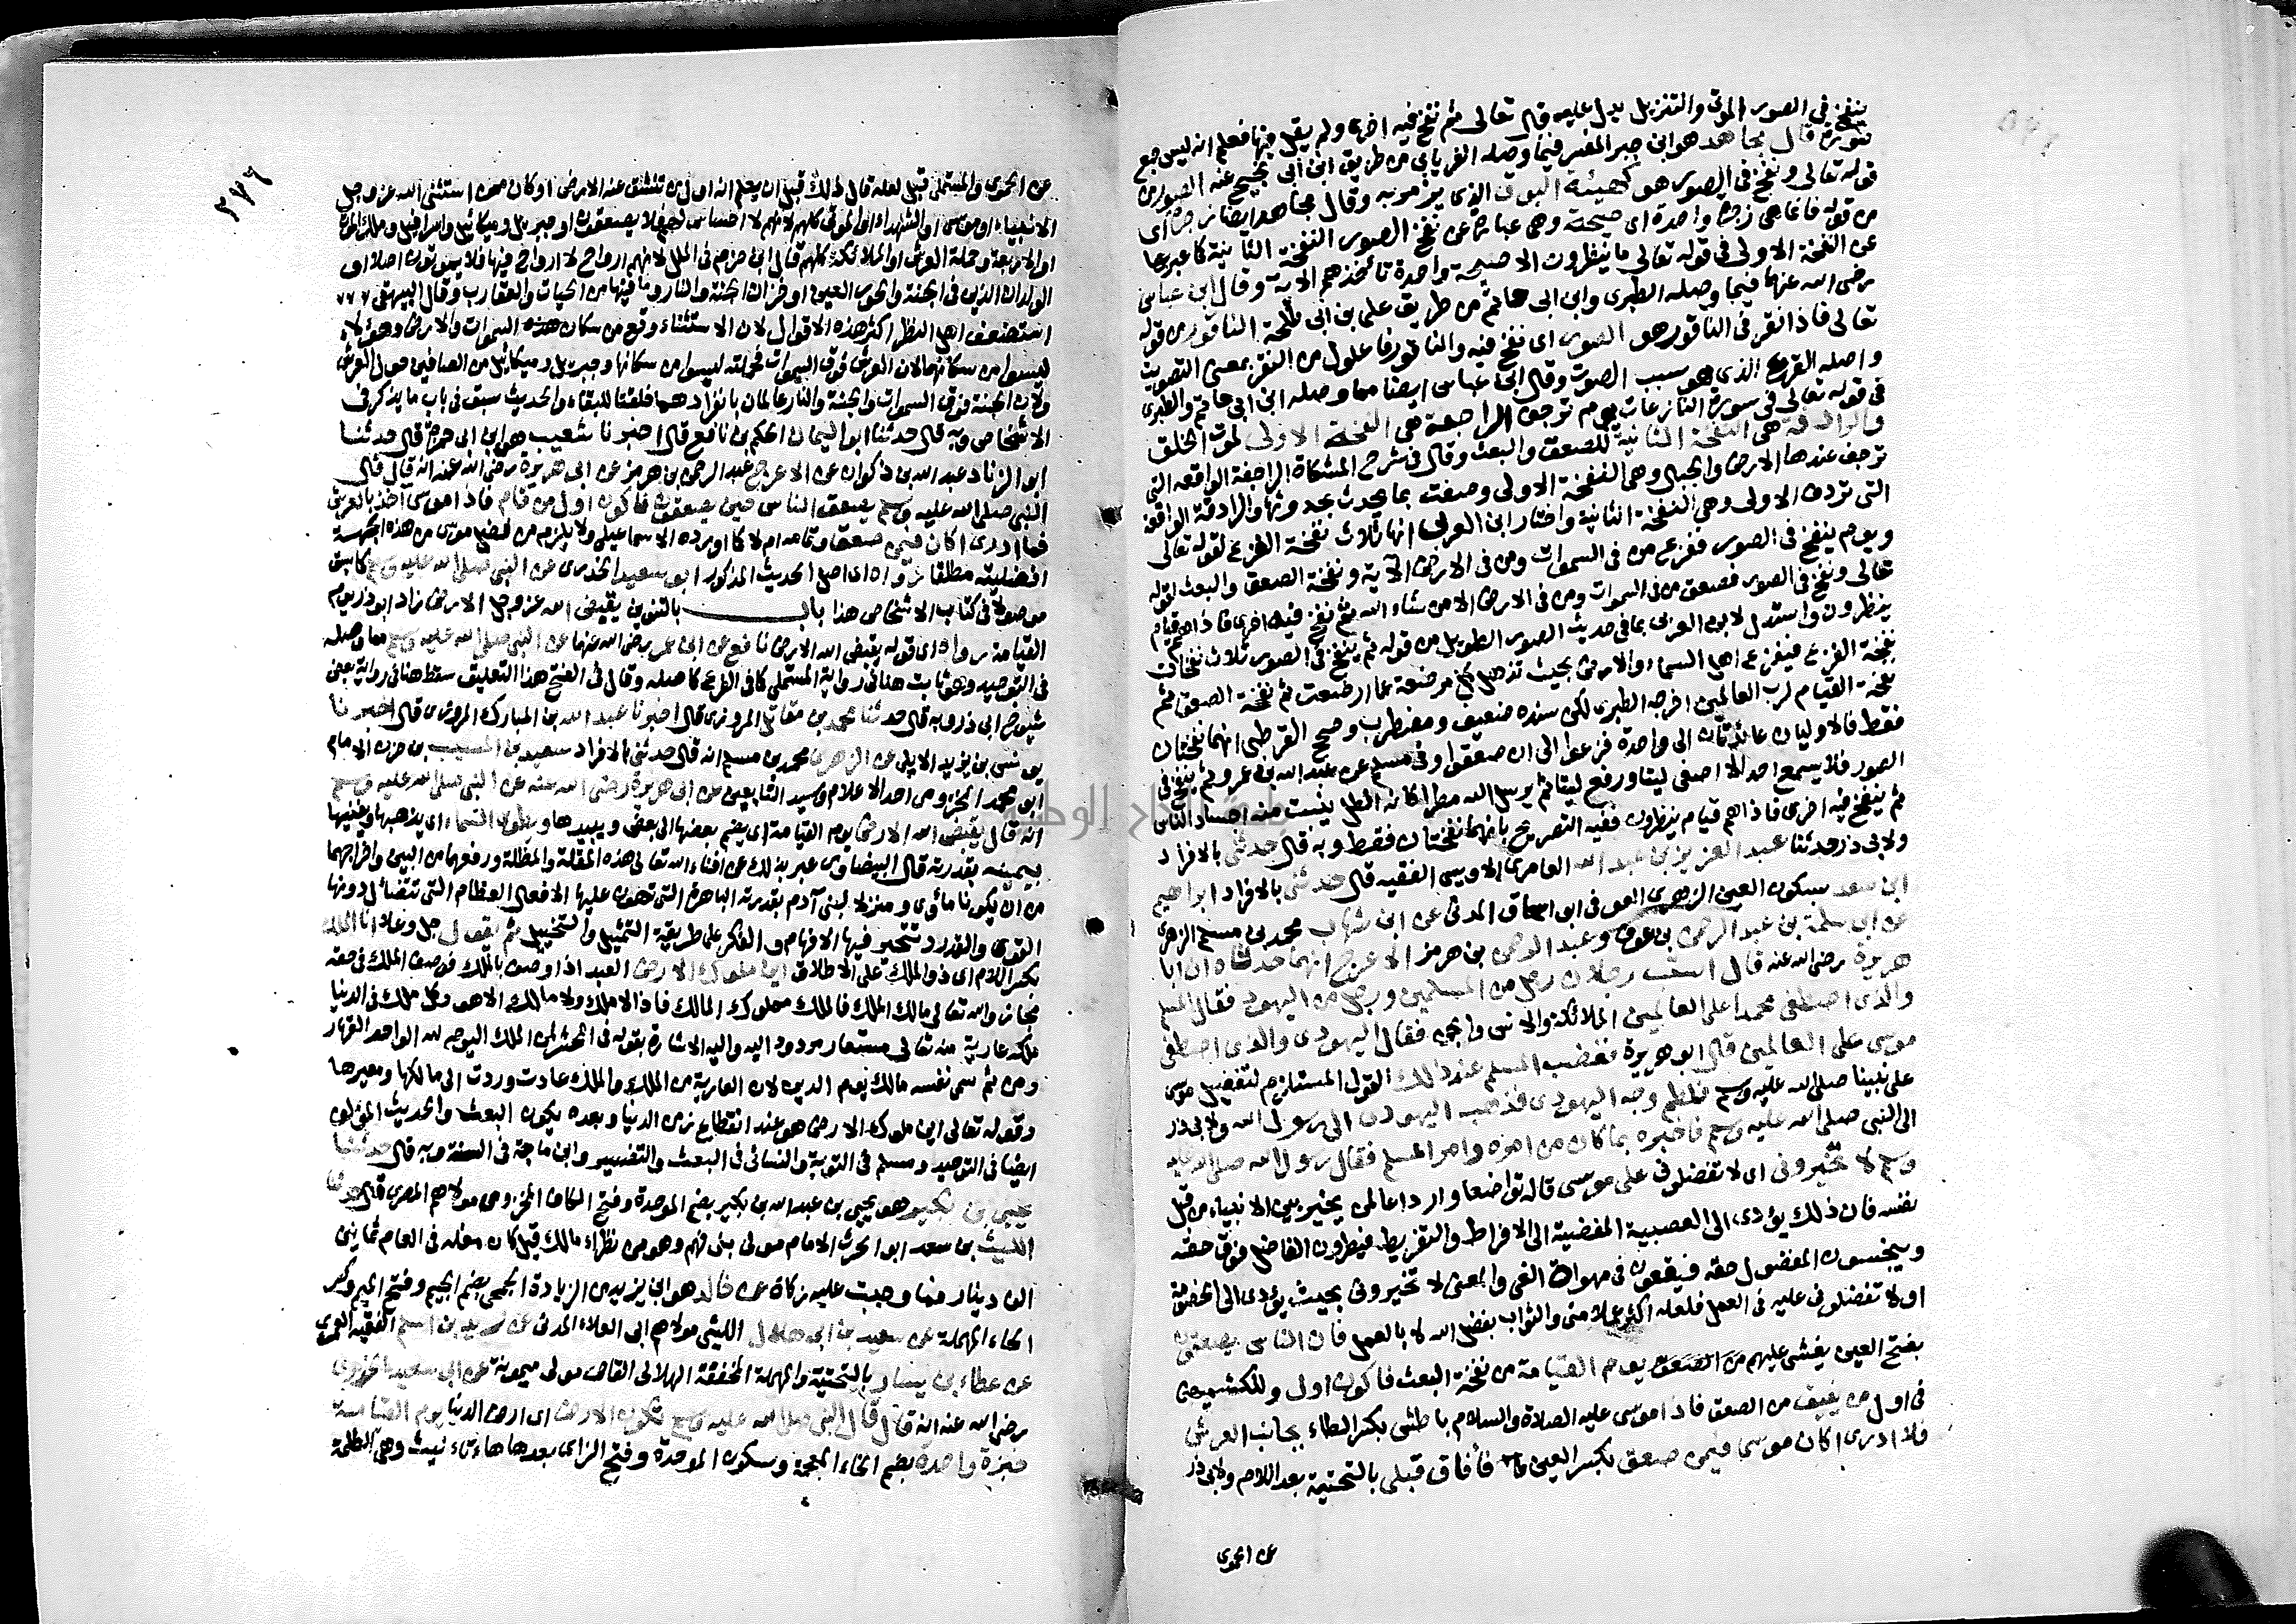 ينفخ في الصور الموتى والتنزيل يدل عليه قال تعالى ثم نفخ فيه اخرى ولم يقل فيها فعلم انه ليس جمع
صورة قال مجاهد هو ابن جبر المفسر فيما وصله الفريابي من طريق ابن ابي نجيح عنه الصور من
قوله تعالى ونفخ في الصور هو كهيئة البوق الذي يزمر به وقال مجاهد ايضا زجرة اي
من قوله فانما هي زجرة واحدة اي صيحة وهي عبارة عن نفخ الصور النفخة الثانية كما عبر بها
عن النفخة الاولى في قوله تعالى ما ينظرون الا صيحة واحدة تأخذهم الاية وقال ابن عباس
رضي الله عنهما فيما وصله الطبري وابن ابي حاتم من طريق علي بن ابي طلحة الناقور من قوله
تعالى فاذا نقر في الناقور هو الصور اي نفخ فيه والناقور فاعول من النقر بمعنى التصويت
واصله القرع الذي هو سبب الصوت وقال ابن عباس ايضا مما وصله ابن ابي حاتم والطبري
في قوله تعالى في سورة النازعات يوم ترجف الراجفة هي النفخة الاولى لموت الخلق
والرادفة هي النفخة الثانية للصعق والبعث وقال في شرح المشكاة الراجفة الواقعة التي
ترجف عندها الارض والجبال وهي النفخة الاولى وصفت بما يحدث بحدوثها والرادفة الواقعة
التي تردف الاولى وهي النفخة الثانية واختار ابن العربي انها ثلاث نفخة الفزع لقوله تعالى
ويوم ينفخ في الصور ففزع من في السموات ومن في الارض الآية ونفخة الصعق والبعث لقوله
تعالى ونفخ في الصور فصعق من في السموات ومن في الارض الا من شاء الله ثم نفخ فيه اخرى فاذا هم قيام
ينظرون واستدل لابن العربي بما في حديث الصور الطويل من قوله ثم ينفخ في الصور ثلاث نفخات
نفخة الفزع فيفزع اهل السماء والارض بحيث تذهل كل مرضعة عما ارضعت ثم نفخة الصعق ثم
نفخة القيام لرب العالمين اخرجه الطبري لكن سنده ضعيف ومضطرب وصحح القرطبي انهما نفختان
فقط فالاوليان عائدتان الى واحدة فزعوا الى ان صعقوا وفي مسلم عن عبد الله بن عمرو ثم ينفخ في
الصور فلا يسمع احد الا اصغى ليتا ورفع ليتا ثم يرسل الله مطرا كانه الطل ينبت منه اجساد الناس
ثم ينفخ فيه اخرى فاذا هم قيام ينظرون ففيه التصريح بانهما نفختان فقط وبه قال حدثني بالافراد
ولابي ذر حدثنا عبد العزيز بن عبد الله العامري الاويسي الفقيه قال حدثني بالافراد ابراهيم
ابن سعد بسكون العين الزهري العوفي ابو اسحاق المدني عن ابن شهاب محمد بن مسلم الزهري
عن ابي سلمة بن عبد الرحمن بن عوف وعبد الرحمن بن هرمز الاعرج انهما حدثاه ان ابا
هريرة رضي الله عنه قال استب رجلان رجل من المسلمين ورجل من اليهود فقال المسلم
والذي اصطفى محمدا على العالمين الملائكة والانس والجن فقال اليهودي والذي اصطفى
موسى على العالمين قال ابو هريرة فغضب المسلم عند ذلك القول المستلزم لتفضيل موسى
على نبينا صلى الله عليه وسلم فلطم وجه اليهودي فذهب اليهودي الى رسول الله ولابي ذر
الى النبي صلى الله عليه وسلم فاخبره بما كان من امره وامر المسلم فقال رسول الله صلى الله عليه
وسلم لا تخيروني اي لا تفضلوني على موسى قاله تواضعا واردا على من يخير بين الانبياء من قبل
نفسه فان ذلك يؤدي الى العصبية المفضية الى الافراط والتفريط فيطرون الفاضل فوق حقه
ويبخسون المفضول حقه فيقعون في مهواة الغي والمعنى لا تخيروني بحيث يؤدي الى الخصومة
او لا تفضلوني عليه في العمل فلعله اكثر عملا مني والثواب بفضل الله لا بالعمل فان الناس يصعقون
بفتح العين يغشى عليهم من الصعق يوم القيامة من نفخة البعث فاكون اول وللكشميهني
في اول من يفيق من الصعق فاذا موسى عليه الصلاة والسلام باطش بكسر الطاء بجانب العرش
فلا ادري اكان موسى فيمن صعق بكسر العين فأفاق قبلي بالتحتية بعد اللام ولابي ذر
عن الحموي
٢٧٦
عن الحموي والمستملي قبل لعله قال ذلك قبل ان يعلم انه اول من تنشق عنه الارض او كان ممن استثنى الله عز وجل
الانبياء او موسى او الشهداء او الموتى كلهم لانهم لا احساس لهم فلا يصعقون او جبريل وميكائيل واسرافيل وملك الموت
او الاربعة وحملة العرش او الملائكة كلهم قال ابن حزم في الملل لانهم ارواح لا ارواح فيها فلا يموتون اصلا او
الولدان الذين في الجنة والحور العين او خزان الجنة والنار وما فيها من الحيات والعقارب وقال البيهقي
استضعف اهل النظر اكثر هذه الاقوال لان الاستثناء وقع من سكان هذه السموات والارض وهؤلاء
ليسوا من سكانهما لان العرش فوق السموات فحملته ليسوا من سكانها وجبريل وميكائيل من الصافين حول العرش
ولان الجنة فوق السموات والجنة والنار عالمان بانفرادهما خلقتا للبقاء والحديث سبق في باب ما يذكر في
الاشخاص وبه قال حدثنا ابو اليمان الحكم بن نافع قال اخبرنا شعيب هو ابن ابي حمزة قال حدثنا
ابو الزناد عبد الله بن ذكوان عن الاعرج عبد الرحمن بن هرمز عن ابي هريرة رضي الله عنه انه قال قال
النبي صلى الله عليه وسلم يصعق الناس حين يصعقون فاكون اول من قام فاذا موسى آخذ بالعرش
فما ادري اكان فيمن صعق وتمامه ام لا كما اورده الاسماعيلي ولا يلزم من فضل موسى من هذه الجهة
افضليته مطلقا رواه اي اصل الحديث المذكور ابو سعيد الخدري عن النبي صلى الله عليه وسلم كما سبق
موصولا في كتاب الاشخاص هذا باب بالتنوين يقبض الله عز وجل الارض زاد ابو ذر يوم
القيامة رواه اي قوله يقبض الله الارض نافع عن ابن عمر رضي الله عنهما عن النبي صلى الله عليه وسلم مما وصله
في التوحيد وهو ثابت هنا في رواية المستملي كما في الفرع كاصله وقال في الفتح هذا التعليق سقط هنا في رواية بعض
شيوخ ابي ذر وبه قال حدثنا محمد بن مقاتل المروزي قال اخبرنا عبد الله بن المبارك المروزي قال اخبرنا
يونس بن يزيد الايلي عن الزهري محمد بن مسلم انه قال حدثني بالافراد سعيد بن المسيب بن حزن الامام
ابو محمد المخزومي احد الاعلام وسيد التابعين عن ابي هريرة رضي الله عنه عن النبي صلى الله عليه وسلم
انه قال يقبض الله الارض يوم القيامة اي يضم بعضها الى بعض ويبيدها ويطوي السماء اي يذهبها ويفنيها
بيمينه بقدرته قال البيضاوي عبر بذلك عن افناء الله تعالى هذه المقلة والمظلة ورفعهما من البين واخراجهما
من ان يكونا مأوى ومنزلا لبني آدم بقدرته الباهرة التي تهون عليها الافعال العظام التي تتضاءل دونها
القوى والقدر وتتحير فيها الافهام والفكر على طريقة التمثيل والتخييل ثم يقول جل وعلا انا الملك
بكسر اللام اي ذو الملك على الاطلاق اين ملوك الارض العبد اذا وصف بالملك فوصف الملك في حقه
مجاز والله تعالى مالك الملك فالملك مملوك المالك فاذا لا ملك ولا مالك الا هو وكل ملك في الدنيا
ملكه عارية منه تعالى مستعار مردود اليه واليه الاشارة بقوله في المحشر لمن الملك اليوم لله الواحد القهار
ومن ثم سمى نفسه مالك يوم الدين لان العارية من الملك والملك عادت وردت الى مالكها ومعيرها
وقوله تعالى اين ملوك الارض هو عند انقطاع زمن الدنيا وبعده يكون البعث والحديث
ايضا في التوحيد ومسلم في التوبة والنسائي في البعث والتفسير وابن ماجة في السنة وبه قال حدثنا
يحيى بن بكير هو يحيى بن عبد الله بن بكير بضم الموحدة وفتح الكاف المخزومي مولاهم المصري قال حدثنا
الليث بن سعد ابو الحرث الامام مولى بني فهم وهو من نظراء مالك قيل كان مغله في العام ثمانين
الف دينار فما وجبت عليه زكاة عن خالد هو ابن يزيد من الزيادة الجمحي بضم الجيم وفتح الميم وكسر
الحاء المهملة عن سعيد بن ابي هلال الليثي مولاهم ابي العلاء المدني عن زيد بن اسلم الفقيه العمري
عن عطاء بن يسار بالتحتية والمهملة المخففة الهلالي القاص مولى ميمونة عن ابي سعيد الخدري
رضي الله عنه انه قال قال النبي صلى الله عليه وسلم تكون الارض اي ارض الدنيا يوم القيامة
خبزة واحدة بضم الخاء المعجمة وسكون الموحدة وفتح الزاي بعدها هاء تأنيث وهي الطلمة